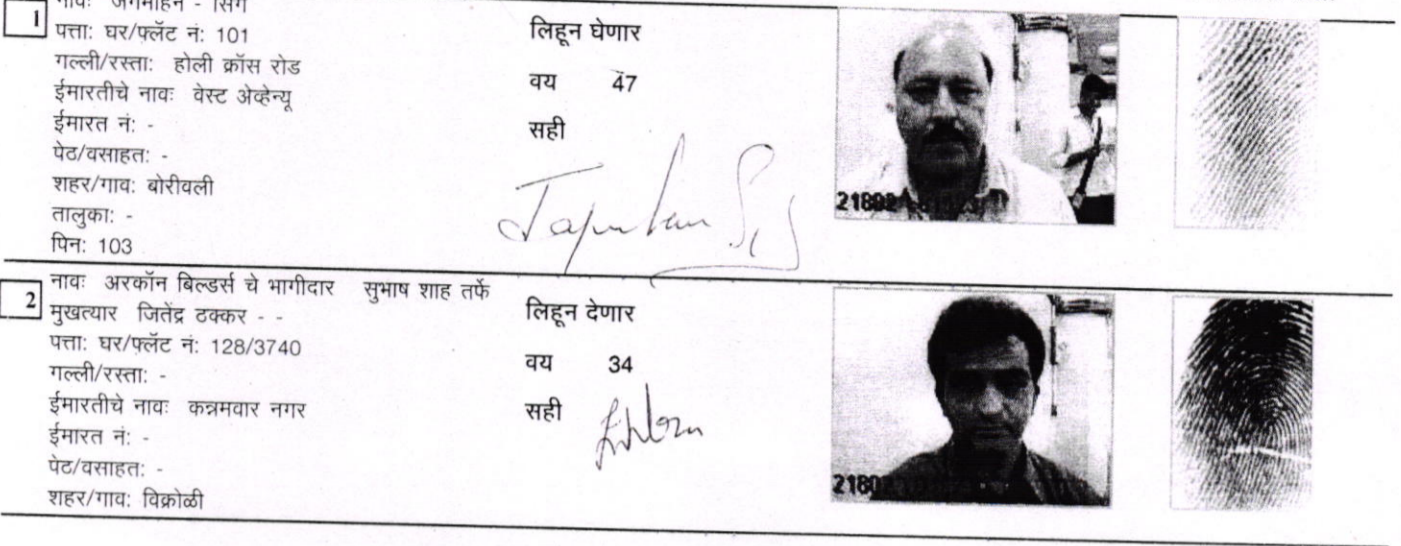 1
नावः जगमोहन - सिंग
पत्ता: घर/फ्लॅट नं: 101
गल्ली/रस्ता: होली क्रॉस रोड
ईमारतीचे नावः वेस्ट अेव्हेन्यू
ईमारत नं: -
पेठ/वसाहत: -
शहर/गाव: बोरीवली
तालुका: -
पिन: 103
लिहून घेणार
वय 47
सही
2
नावः अरकॉन बिल्डर्स चे भागीदार सुभाष शाह तर्फे
मुखत्यार जितेंद्र ठक्कर - -
पत्ता: घर/फ्लॅट नं: 128/3740
गल्ली/रस्ता: -
ईमारतीचे नावः कन्नमवार नगर
ईमारत नं: -
पेठ/वसाहत: -
शहर/गाव: विक्रोळी
लिहून देणार
वय 34
सही